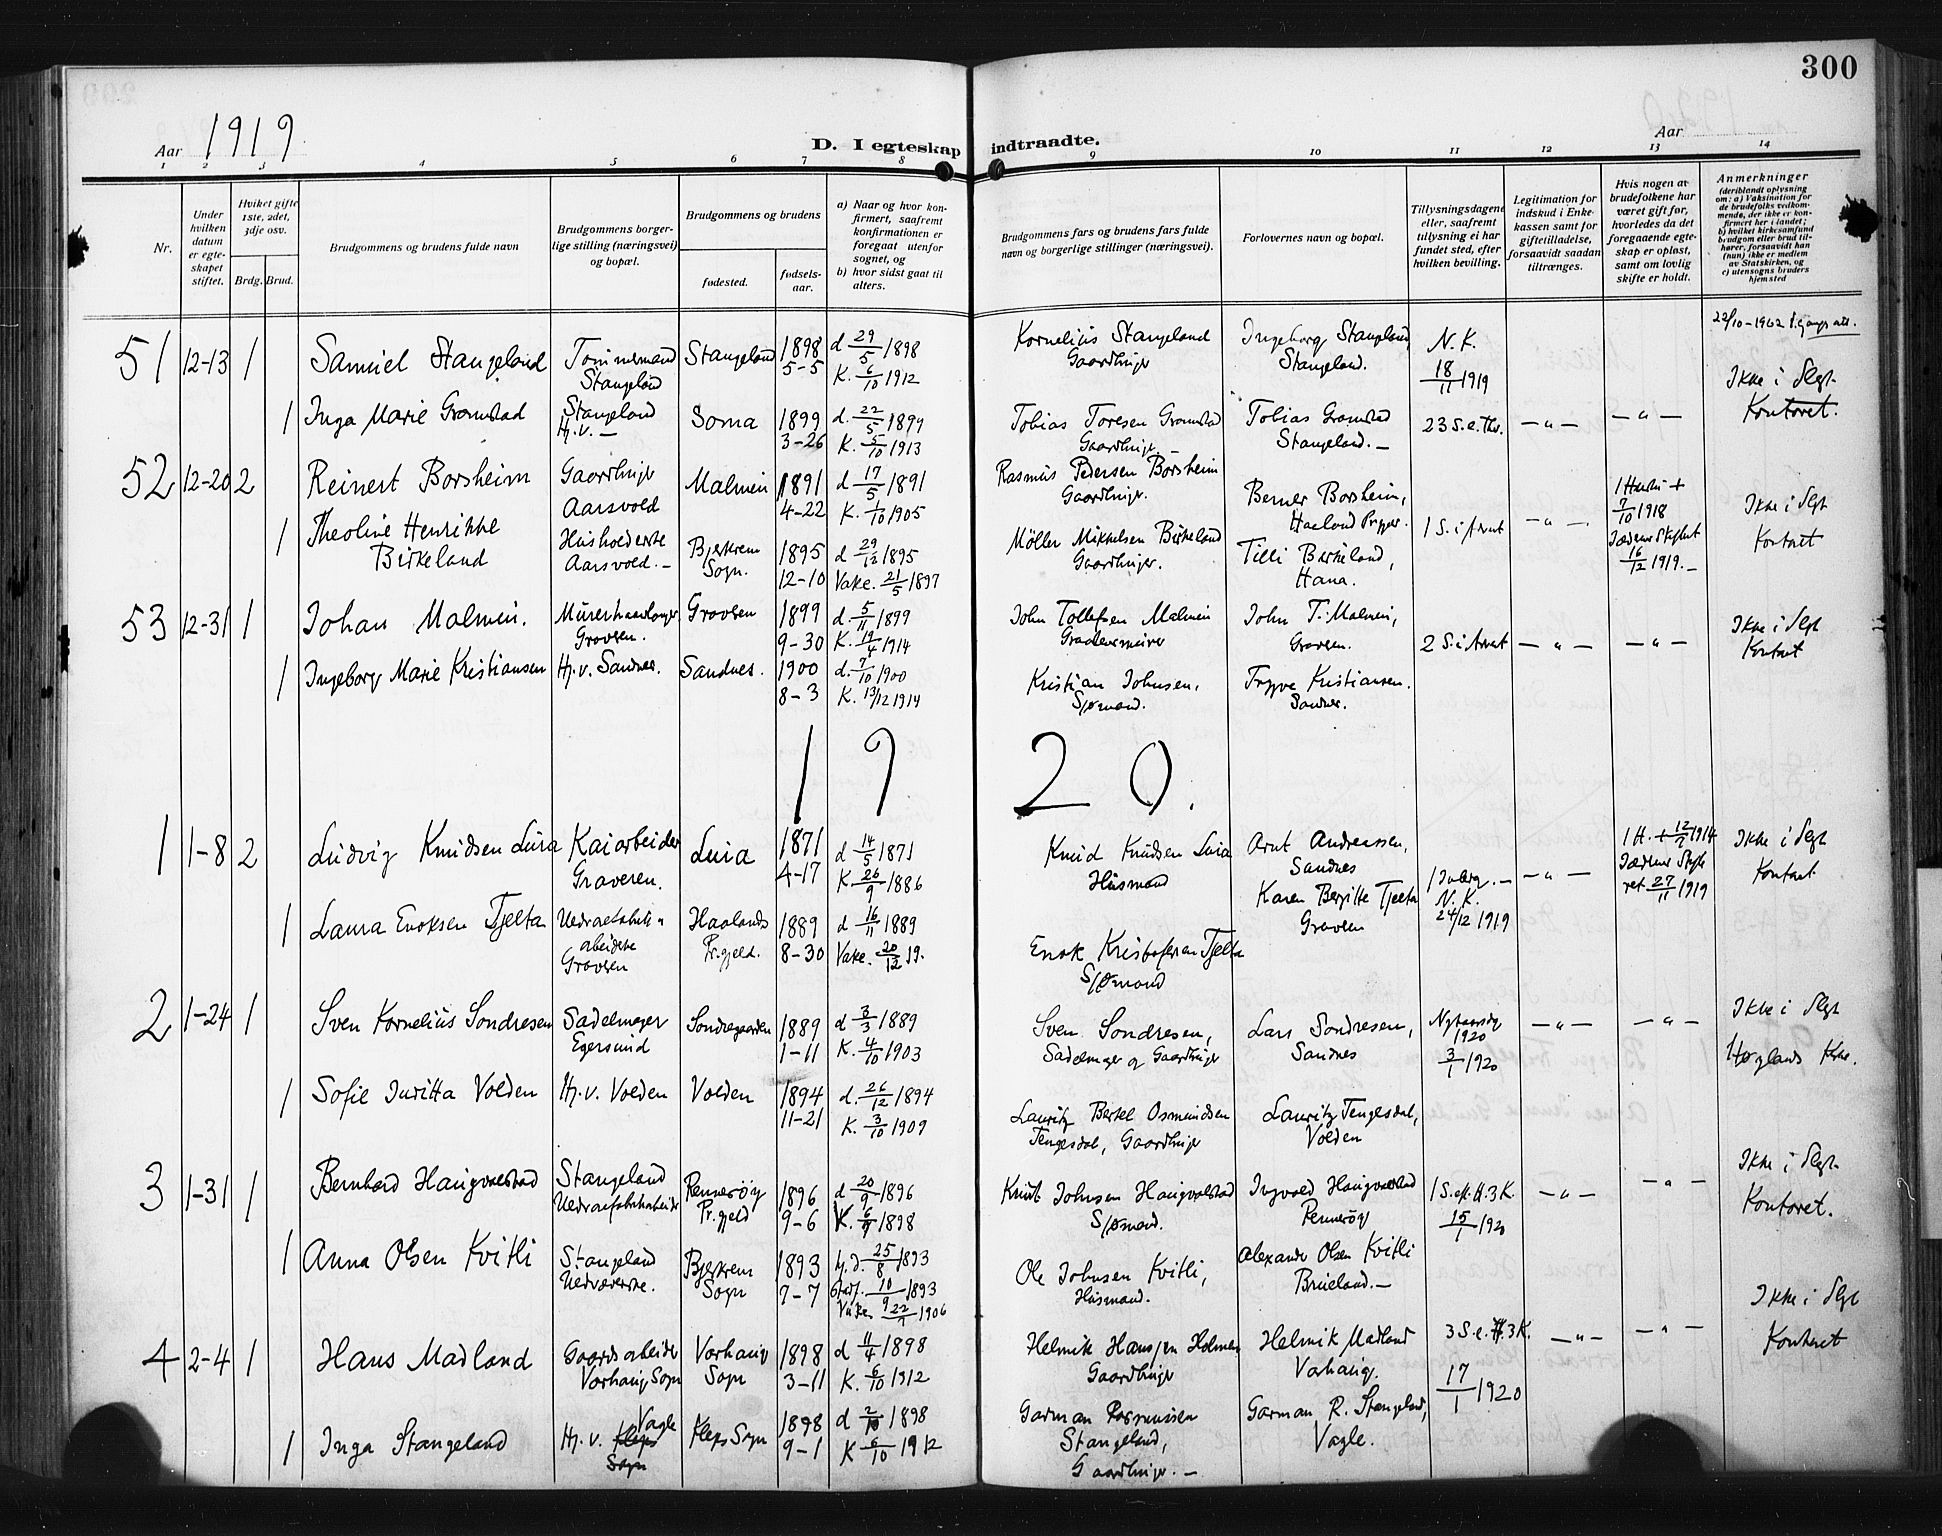 300
Aar 1919
D. I egteskap indtraadte.
Aar
1 2 3 4 5 6 7 8 9 10 11 12 13 14
Nr.
Under hvilken datum er egteskapet stiftet.
Hvilket gifte 1ste, 2det, 3dje osv.
Brdg. Brud.
Brudgommens og brudens fulde navn
Brudgommens borgerlige stilling (næringsvei) og bopæl.
Brudgommens og brudens
fødested.
fødselsaar.
a) Naar og hvor konfirmert, saafremt konfirmationen er foregaat utenfor sognet, og
b) hvor sidst gaat til alters.
Brudgommens fars og brudens fars fulde navn og borgerlige stillinger (næringsvei).
Forlovernes navn og bopæl.
Tillysningsdagene eller, saafremt tillysning ei har fundet sted, efter hvilken bevilling.
Legitimation for indskud i Enkekassen samt for giftetilladelse, forsaavidt saadan tiltrænges.
Hvis nogen av brudefolkene har været gift før, hvorledes da det foregaaende egteskap er opløst, samt om lovlig skifte er holdt.
Anmerkninger
(deriblandt oplysning om: a) Vaksination for de brudefolks vedkommende, der ikke er konfirmert her i landet; b) hvilket kirkesamfund brudgom eller brud tilhører, forsaavidt han (hun) ikke er medlem av Statskirken, og c) utensogns bruders hjemsted
51 12-13 1 Samuel Stangeland Tømmermand Stangeland Stangeland 1898 5-5 d 29/5 1898 K. 6/10 1912 Kornelius Stangeland Gaardbruger Ingeborg Stangeland, Stangeland. N.K. 18/11 1919 22/10-1962 Ikke i Slegt Kontoret.
1 Inga Marie Gramstad Stangeland Hj.v. — Soma 1899 3-26 d. 22/5 1899 K. 5/10 1913 Tobias Toresen Gramstad Gaardbruger — Tobias Gramstad Stangeland. — 23 S.e.Thr. — „ — — „ —
52 12-20 2 Reinert Borsheim Gaardbruger Aarsvold Malmein 1891 4-22 d 17/5 1891 K. 1/10 1905 Rasmus Pedersen Borsheim Gaardbruger. Berner Borsheim, Haaland Prgjæ. 1 S. i Advent — „ — 1 Hustru + 7/10 1918 16/12 1919. — Ikke i Slegt Kontoret
1 Theoline Henrikke Birkeland Husholderske Aarsvold. — Bjerkreim Sogn. 1895 12-10 d 29/12 1895 Vakc. 21/5 1897 Møller Mikkelsen Birkeland Gaardbruger. Tilli Birkeland, Hana.
53 12-31 1 Johan Malmein. Murerhaandlanger Gravren. Gravren 1899 9-30 d. 5/11 1899 K. 19/4 1914 John Tollefsen Malmein John T. Malmein, Gravren. 2 S. i Advent — „ — — „ — Ikke i Slegt Kontoret
1 Ingeborg Marie Kristiansen Hj.v. Sandnes. Sandnes. 1900 8-3 d. 7/10 1900 K. 13/12 1914 Kristian Johnsen, Sjømand. Trygve Kristiansen. Sandnes.
1920.
1 1-8 2 Ludvig Knudsen Lura Kaiarbeider Graveren. Lura 1871 4-17 d 14/5 1871 K. 26/9 1886 Knud Knudsen Lura Husmand Arnt Andreassen, Sandnes — „ — 27/11 1919 Ikke i Slegt Kontoret
1 Laura Enoksen Tjelta Graveren Haalands Pr.gjeld. 1889 8-30 d 16/11 1889 Vakc. 20/12 19. Enok Kristofersen Tjelta Sjømand Karen Bergitte Tjelta Graveren N.K. 24/12 1919
2 1-24 1 Sven Kornelius Sondresen Sadelmager Egersund Sondregaarden 1889 1-11 d 3/3 1889 K. 4/10 1903 Sven Sondresen, Sadelmager og Gaardbruger Lars Sondresen, Sandnes Nytaarsdag 1920 3/1 1920 — „ — — „ — Ikke i Slegt Høglands Kirke.
1 Sofie Juritta Volden Hj.v. Volden Volden 1894 11-21 d. 26/12 1894 K. 3/10 1909 Lauritz Bertel Osmundsen Tengesdal, Gaardbruger Lauritz Tengesdal, Volden
3 1-31 1 Bernhard Haugvaldstad Stangeland Uldvarefabrikarbeider Rennesøy Pr.gjeld 1896 9-6 d 20/9 1896 K. 6/9 1898 Knut Johnsen Haugvaldstad Sjømand. Ingvald Haugvaldstad Rennesøy 1 S. ef. H. 3 K. 15/1 1920 — „ — — „ — Ikke i Slegt Kontoret.
1 Anna Olsen Kvitli Stangeland Uldvæverske. Bjerkreim Sogn 1893 7-7 hj.d. 25/8 1893 Stadf. 10/9 1893 1906 Ole Johnsen Kvitli, Husmand. Alexander Olsen Kvitli Brueland. —
4 2-4 1 Hans Madland Gaardsarbeider Varhaug Sogn Varhaug Sogn 1898 3-11 d 11/4 1898 K. 6/10 1912 Helmik Hansen Holmen Gaardbruger Helmik Madland Varhaug. 3 S. e. H. 3 K. 17/1 1920 — „ — — „ — Ikke i Slegt Kontoret
1 Inga Stangeland Hj.v. Vagle Klepp Sogn Klepp Sogn 1898 9-1 d 2/10 1898 K 6/10 1912 Garman Rasmussen Stangeland, Gaardbruger. — Garman R. Stangeland, Vagle.